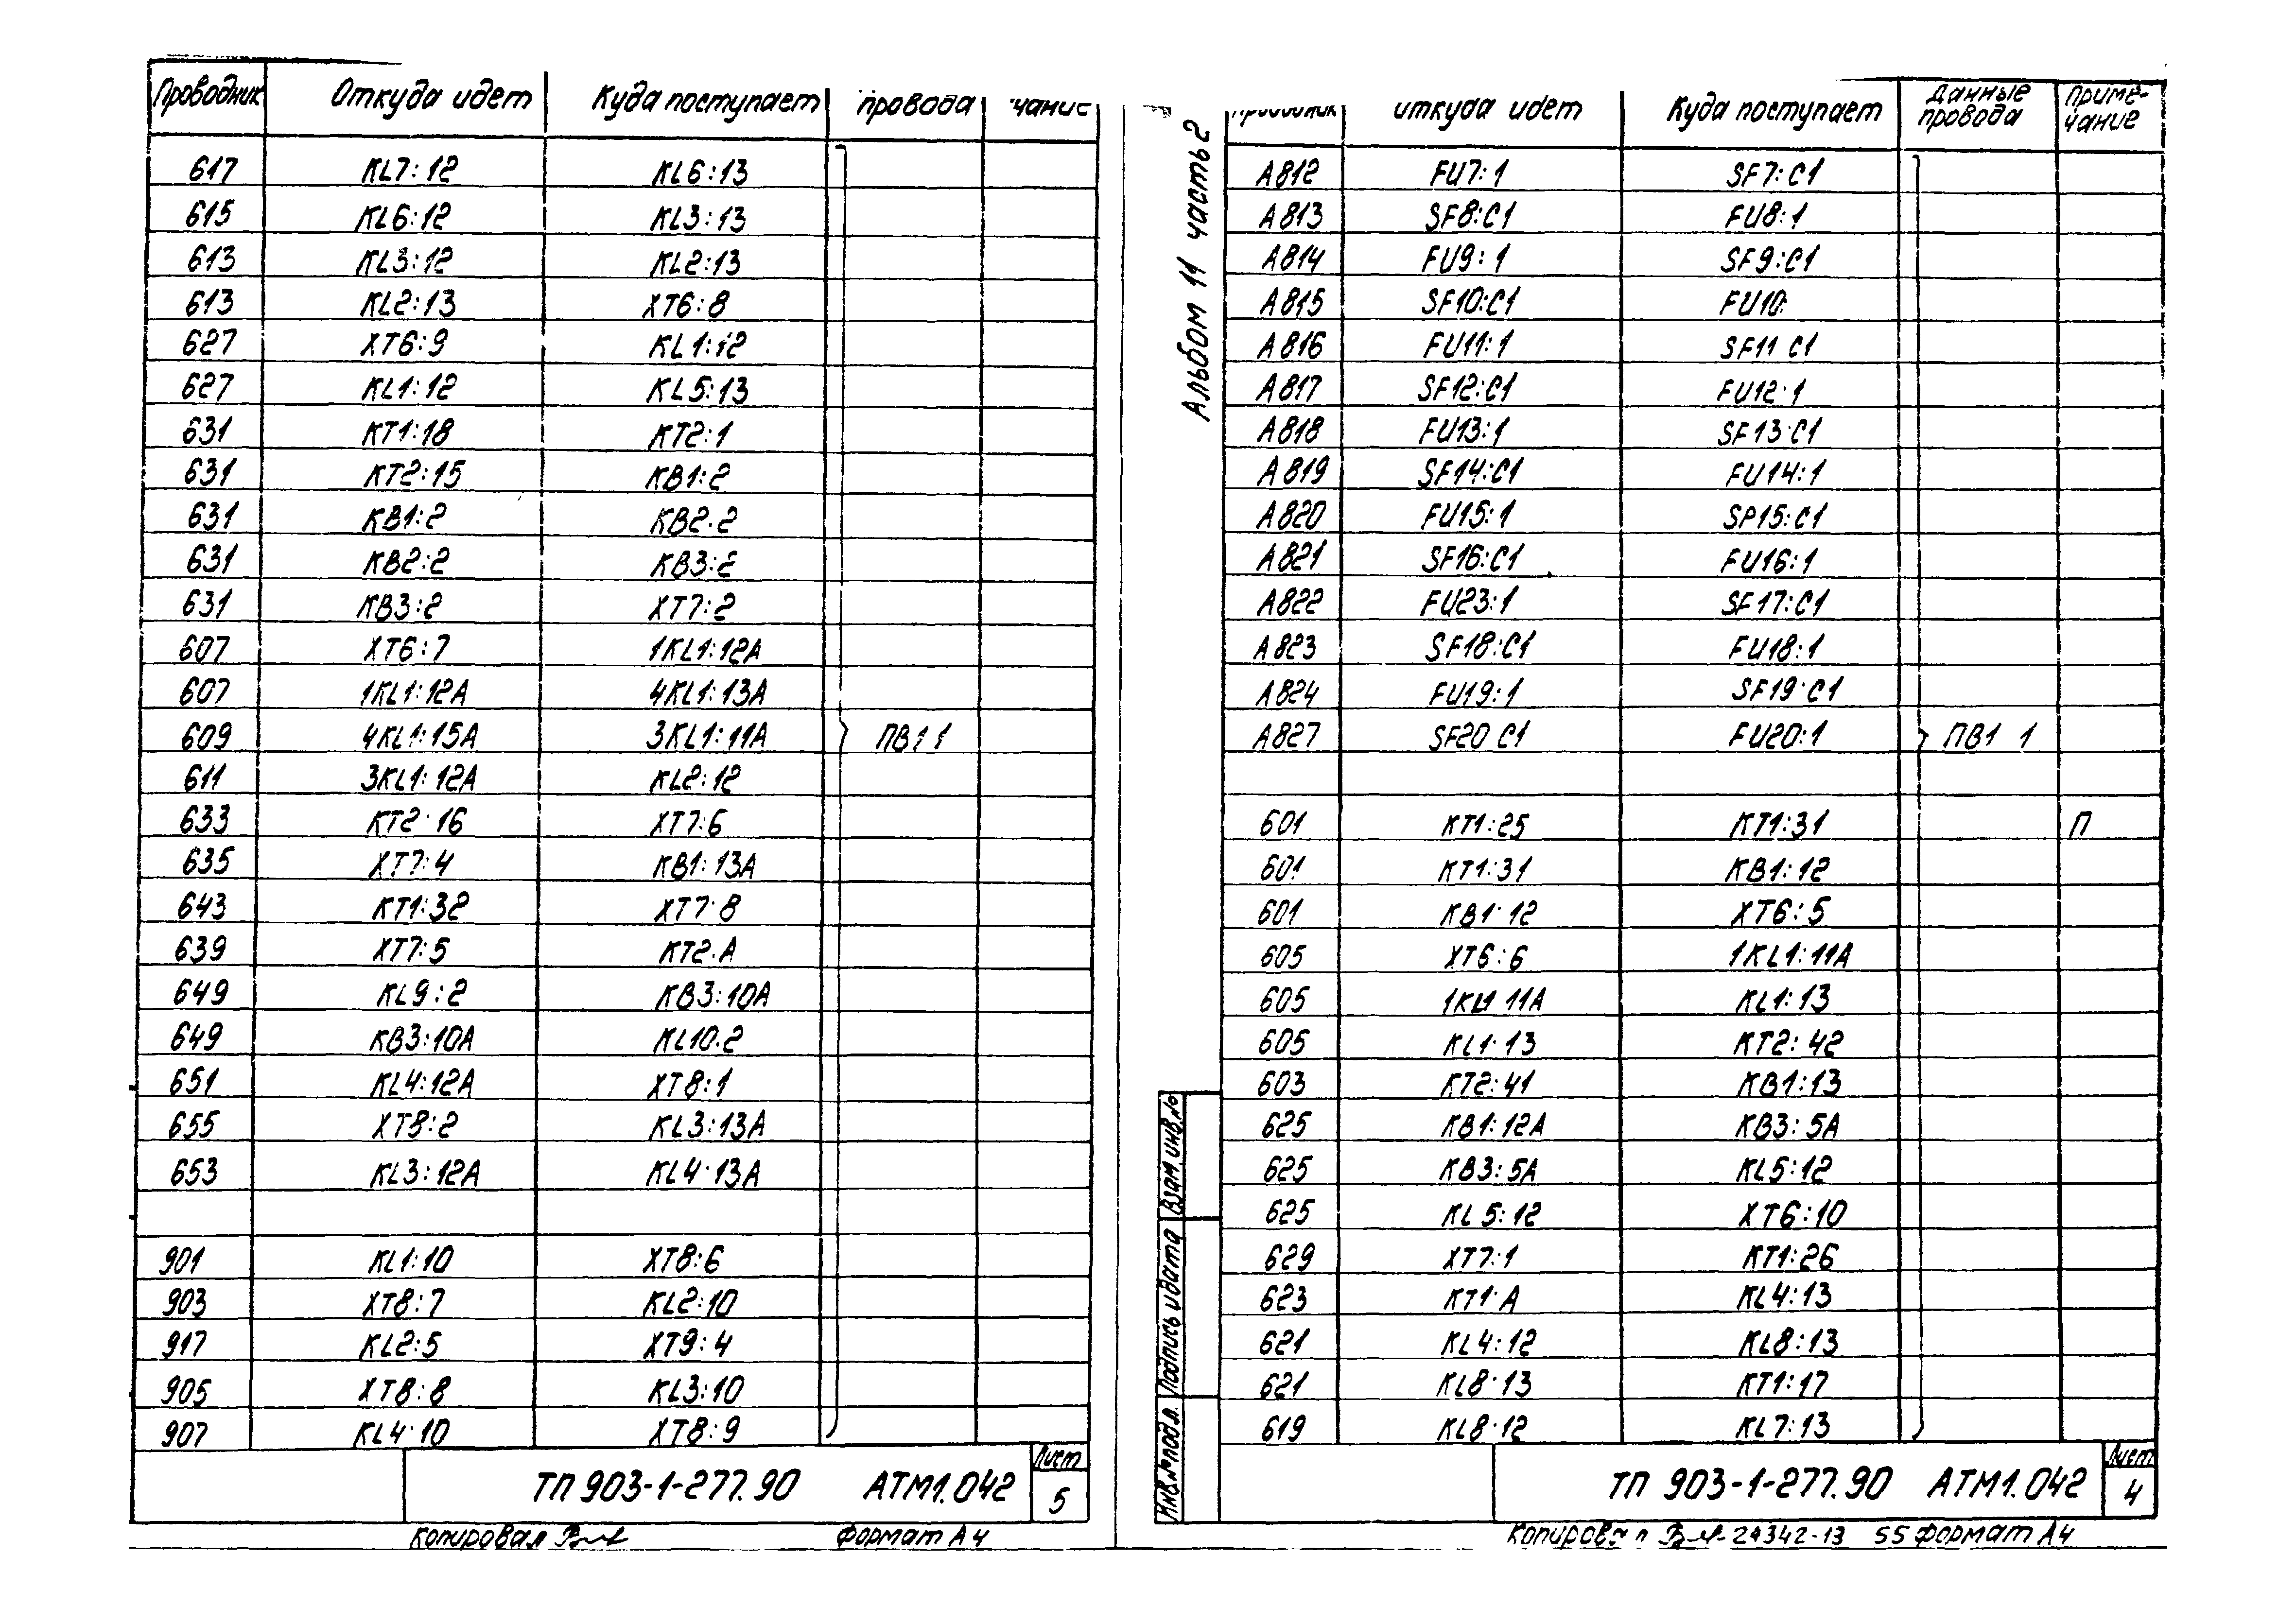 Проводник Откуда идет Куда поступает провода чание
617 KL7:12 KL6:13
615 KL6:12 KL3:13
613 KL3:12 KL2:13
613 KL2:13 XT6:8
627 XT6:9 KL1:12
627 KL1:12 KL5:13
631 KT1:18 KT2:1
631 KT2:15 KB1:2
631 KB1:2 KB2.2
631 KB2:2 KB3:2
631 KB3:2 XT7:2
607 XT6:7 1KL1:12A
607 1KL1:12A 4KL1:13A
609 4KL1:15A 3KL1:11A ПВ1 1
611 3KL1:12A KL2:12
633 KT2·16 XT7:6
635 XT7:4 KB1:13A
643 KT1:32 XT7·8
639 XT7:5 KT2.A
649 KL9:2 KB3:10A
649 KB3:10A KL10.2
651 KL4:12A XT8:1
655 XT8:2 KL3:13A
653 KL3:12A KL4·13A
901 KL1:10 XT8:6
903 XT8:7 KL2:10
917 KL2:5 XT9:4
905 XT8:8 KL3:10
907 KL4·10 XT8:9
ТП 903-1-277.90 АТМ1.042 Лист 5
Копировал Формат А4
Альбом 11 часть 2
Проводник Откуда идет Куда поступает Данные провода Приме-чание
A812 FU7:1 SF7:C1
A813 SF8:C1 FU8:1
A814 FU9:1 SF9:C1
A815 SF10:C1 FU10:
A816 FU11:1 SF11 C1
A817 SF12:C1 FU12·1
A818 FU13:1 SF13·C1
A819 SF14:C1 FU14:1
A820 FU15:1 SP15:C1
A821 SF16:C1 FU16:1
A822 FU23:1 SF17:C1
A823 SF18:C1 FU18:1
A824 FU19:1 SF19·C1
A827 SF20 C1 FU20:1 ПВ1 1
601 KT1:25 KT1:31 П
601 KT1:31 KB1:12
601 KB1:12 XT6:5
605 XT6:6 1KL1:11A
605 1KL1 11A KL1:13
605 KL1·13 KT2:42
603 KT2:41 KB1:13
625 KB1:12A KB3:5A
625 KB3:5A KL5:12
625 KL5:12 XT6:10
629 XT7:1 KT1:26
623 KT1·A KL4:13
621 KL4:12 KL8:13
621 KL8·13 KT1:17
619 KL8·12 KL7:13
Взам.инв.№
Подпись и дата
Инв.№ подл.
ТП 903-1-277.90 АТМ1.042 Лист 4
24342-13 55 Формат А4